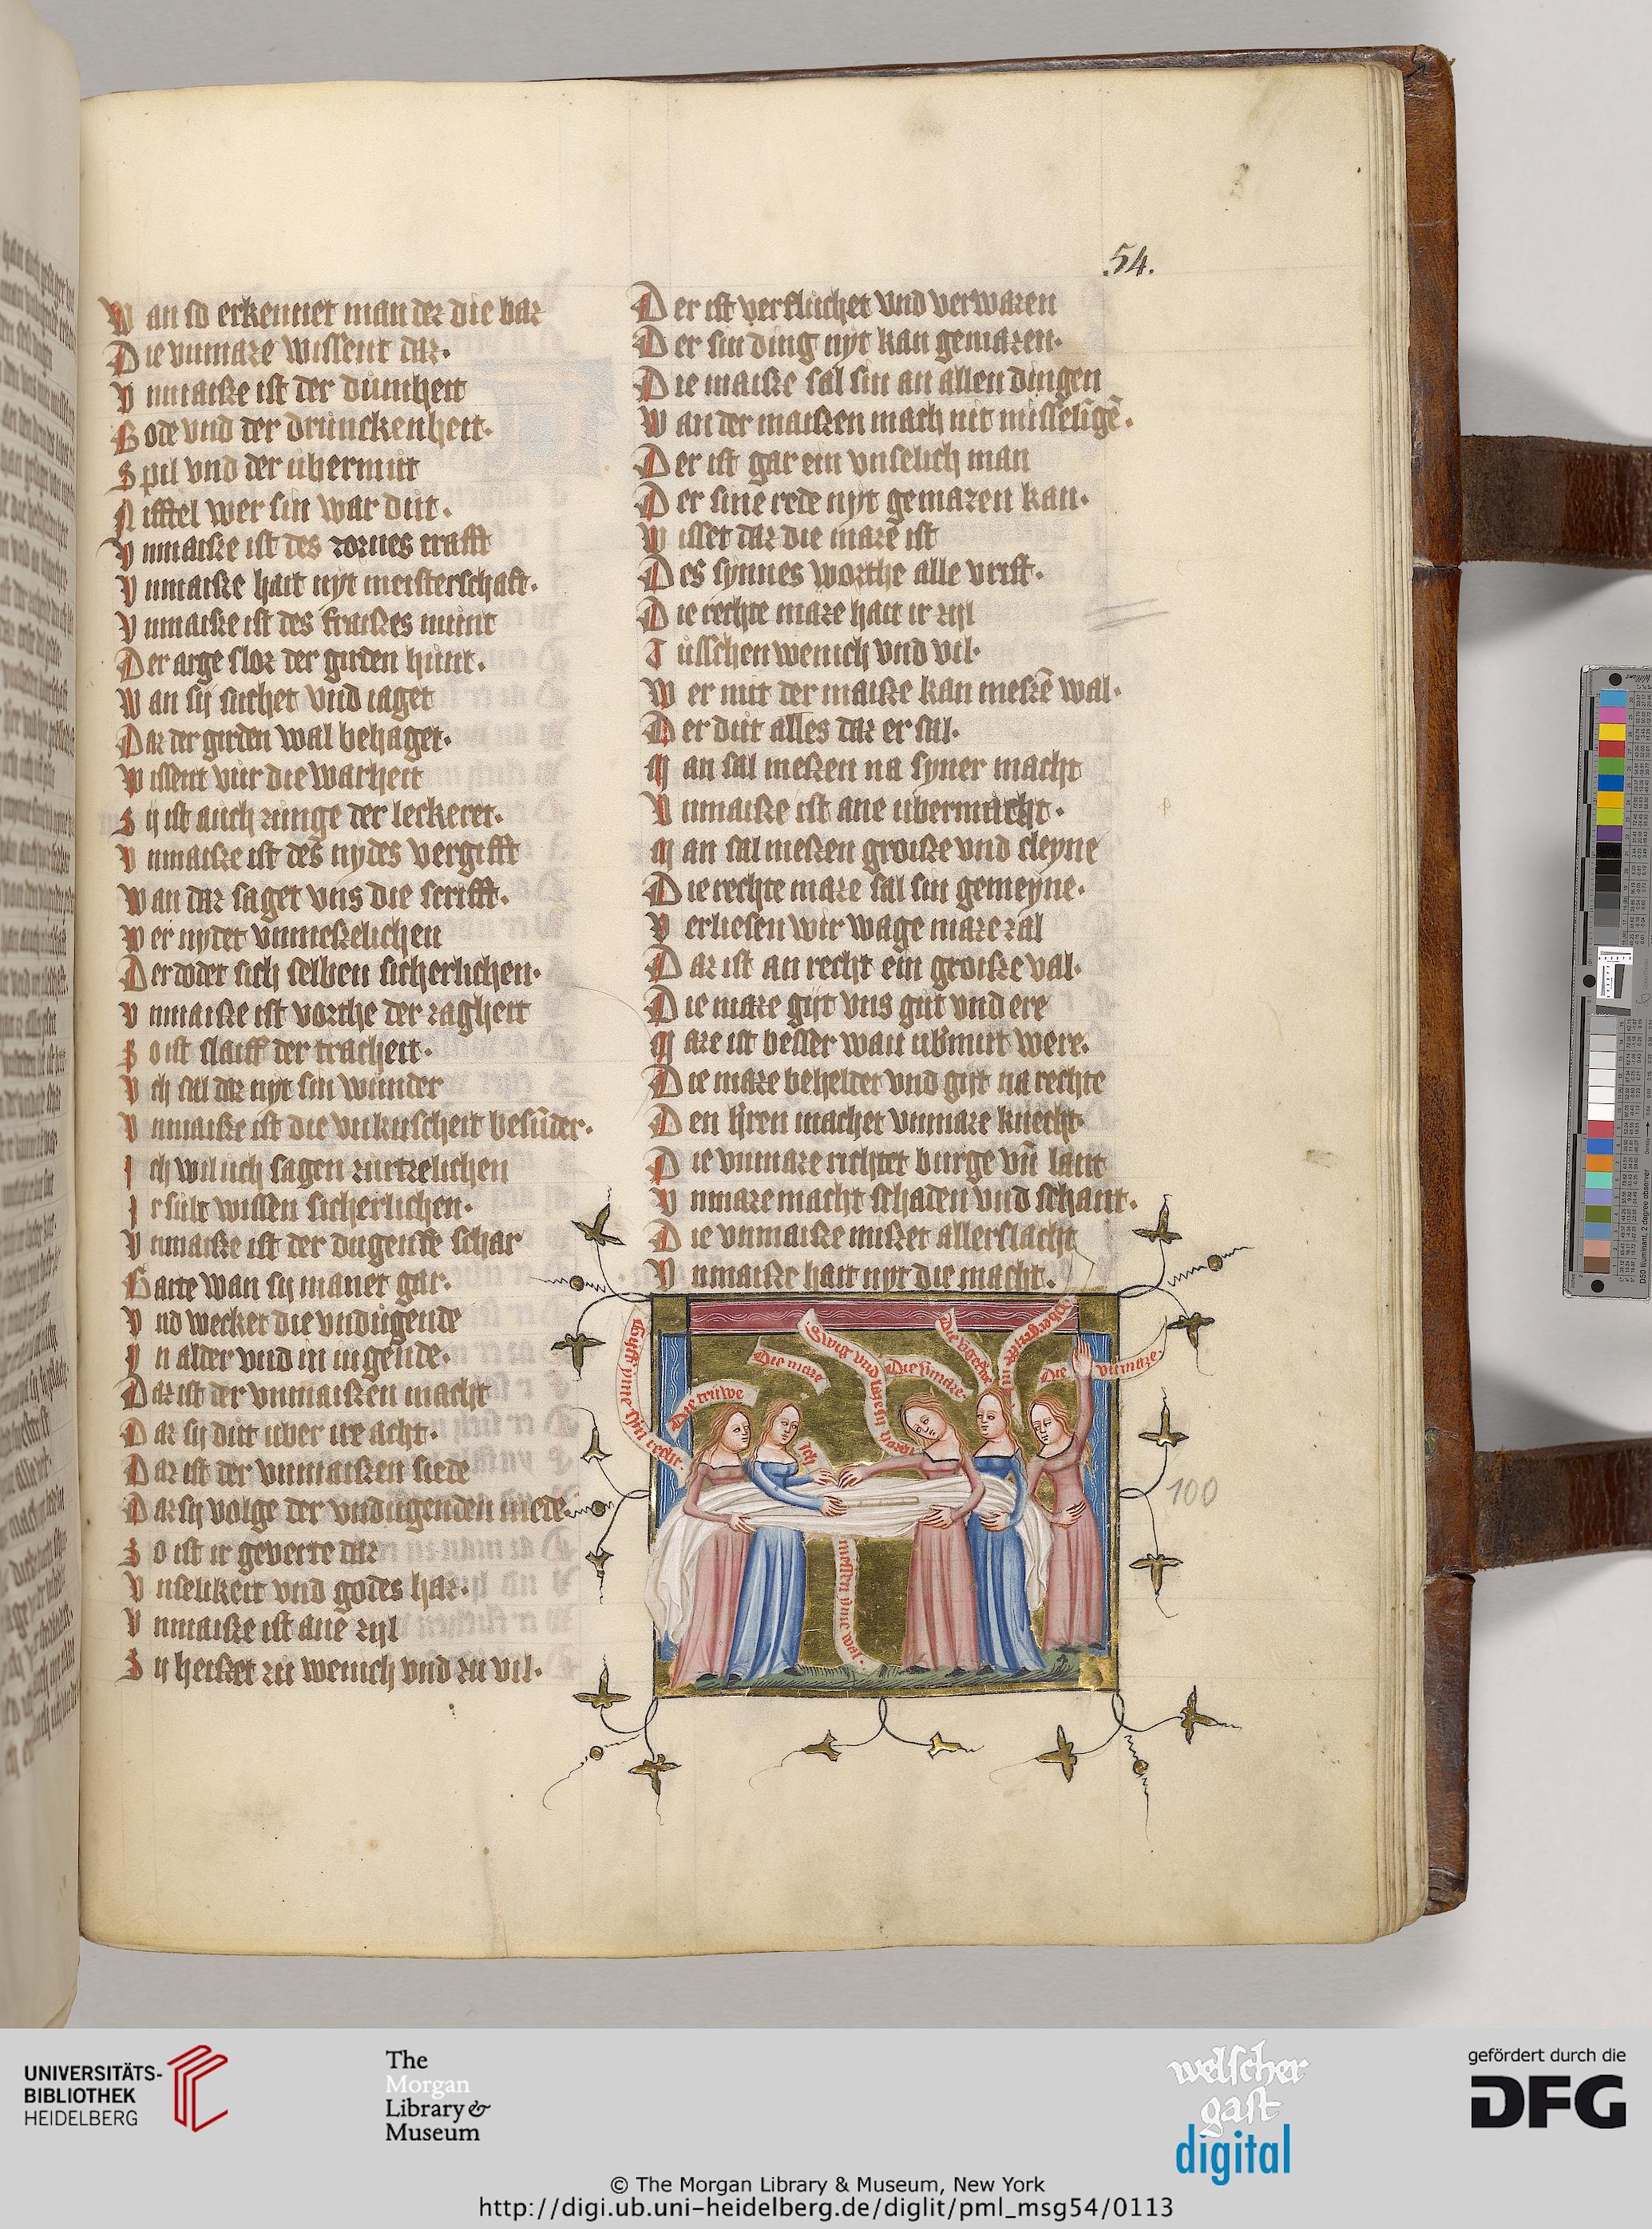 54.
Wan so erkennet man der die bar
Die vnmaze wissent daz.
Vnmaisze ist der dumheit
Bode vnd der drunckenheit.
Spil vnd der ubermut
Nifftel wer sin war dut.
Vnmaisze ist des zornes crafft
Vnmaisze hait nyt meisterschaft.
Vnmaisze ist des fraiszes munt
Der arge sloz der girden hunt.
Wan sij suchet vnd iaget
Daz der girden wal behaget.
Wissent vur die warheit
Sij ist auch zunge der leckeret.
Vnmaisze ist des nydes vergifft
Wan daz saget vns die scrifft.
Wer nydet vnmeszelichen
Der dodet sich selben sicherlichen.
Vnmaisze ist vorthe der zagheit
So ist slaiff der tracheit.
Vch sal daz nyt sin wunder
Vnmaisze ist die vnkuscheit besunder.
Ich wil uch sagen zurtzelichen
Ir sult wissen sicherlichen.
Vnmaisze ist der dugende schar
Harte wan sij manet gar.
Vnd wecket die vndugende
In alder vnd in iugende.
Daz ist der vnmaiszen macht
Daz sij dut uber ire acht.
Daz ist der vnmaiszen siede
Daz sij volge der vndugenden mede.
So ist ir geverte daz
Vnselikeit vnd godes haz.
Vnmaisze ist ane zijl
Sij heiszet zu wenich vnd zu vil.
Der ist verfluchet vnd verwazen
Der sin ding nyt kan gemazen.
Die maisze sal sin an allen dingen
Wan der maiszen mach nit misseligē.
Der ist gar ein vnselich man
Der sine rede nyt gemazen kan.
Wisset daz die maze ist
Des synnes worthe alle vrist.
Die rechte maze hait ir zijl
Tusschen wenich vnd vil.
Wer mit der maisze kan meszē wal.
Der dut alles daz er sal.
Man sal meszen na syner macht
Vnmaisze ist ane ubermacht.
Man sal meszen groisze vnd cleyne
Die rechte maze sal sin gemeyne.
Verliesen wir wage maze zal
Daz ist an recht ein groisze val.
Die maze gijt vns gut vnd ere
Maze ist besser wan ubmut were.
Die maze beheldet vnd git na rechte
Den hren machet vnmaze knecht.
Die vnmaze richtet burge vn̄ lant
Vnmaze macht schaden vnd schant.
Die vnmaisze miszet allerslacht
Vnmaisze hait nyt die macht.
Die truwe
Die maze
Swig vnd
Die
Die vnmaze.
ich
messen yme wal.
100
UNIVERSITÄTS-
BIBLIOTHEK
HEIDELBERG
The
Morgan
Library &
Museum
welscher
gast
digital
gefördert durch die
DFG
© The Morgan Library & Museum, New York
http://digi.ub.uni-heidelberg.de/diglit/pml_msg54/0113